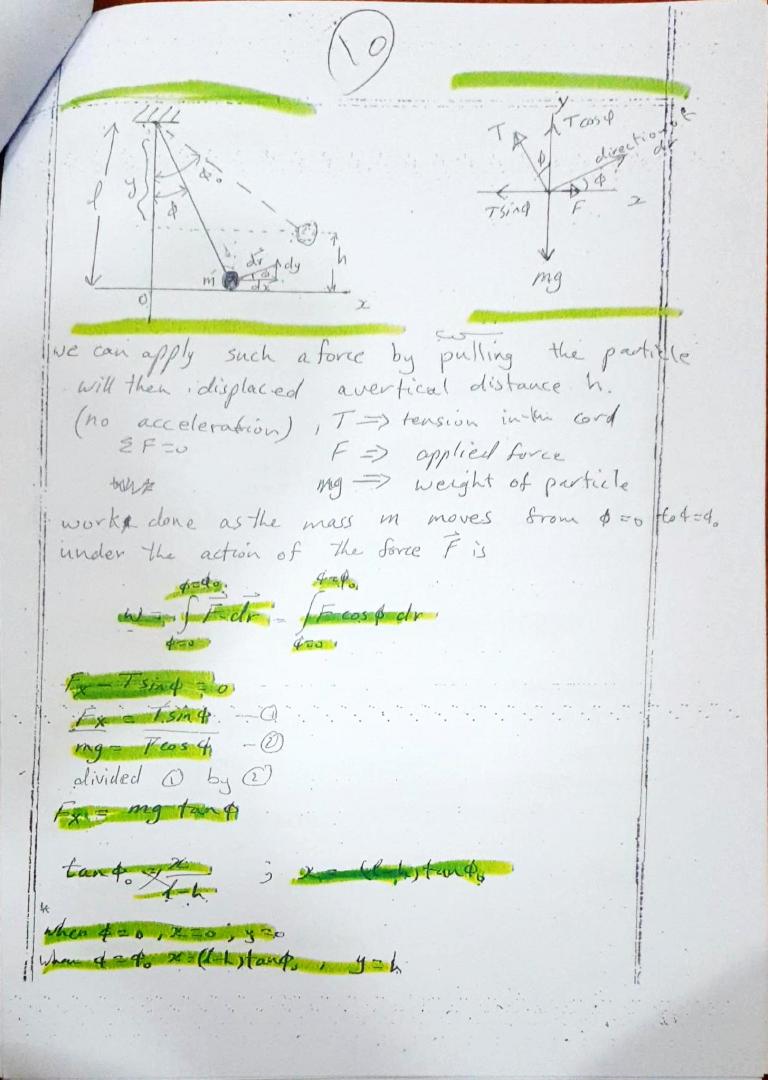 10
l
y
φ
φ₀
m
dr
dy
dx
h
0
x
y
T
T cosφ
φ
direction of
dr
φ
T sinφ
F
x
mg
we can apply such a force by pulling the particle
will then displaced avertical distance h.
(no acceleration), T ⇒ tension in the cord
ΣF=0 F ⇒ applied force
mg ⇒ weight of particle
work done as the mass m moves from φ=0 to φ=φ₀
under the action of the force F is
w = ∫ F.dr = ∫ F cosφ dr
φ=φ₀ φ=φ₀
φ=0 φ=0
Fx - T sinφ = 0
Fx = T sinφ — ①
mg = T cosφ — ②
divided ① by ②
Fx = mg tanφ
tanφ₀ = x/(l-h) ; x = (l-h) tanφ₀
when φ=0, x=0, y=0
when φ=φ₀ x=(l-h)tanφ₀, y=h